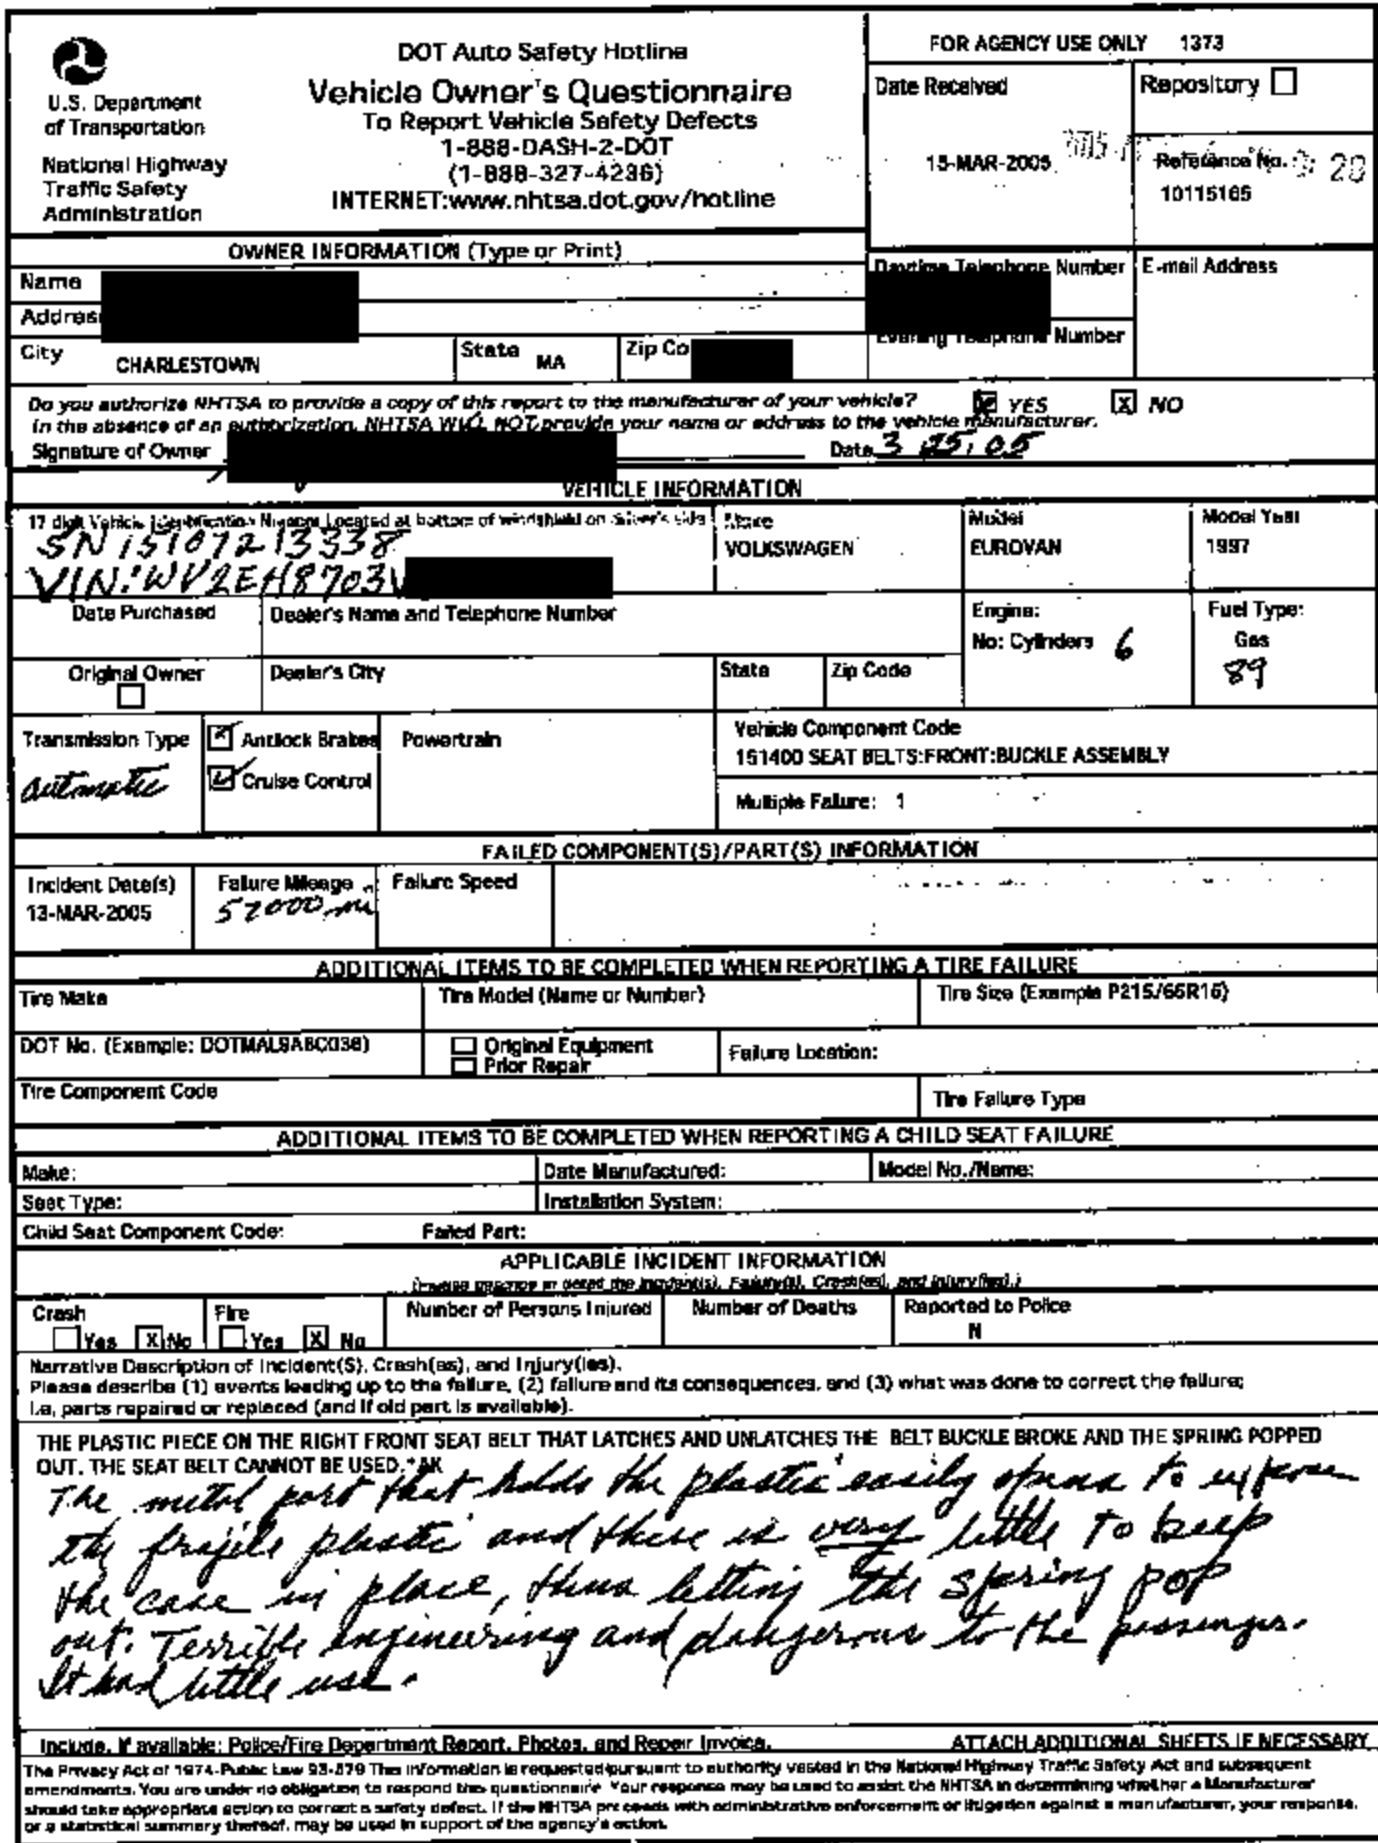 FOR AGENCY USE ONLY 1373
DOT Auto Safety Hotline
Vehicle Owner's Questionnaire
To Report Vehicle Safety Defects
1-888-DASH-2-DOT
(1-888-327-4236)
INTERNET:www.nhtsa.dot.gov/hotline
U.S. Department
of Transportation
National Highway
Traffic Safety
Administration
Date Received
15-MAR-2005
Repository
Reference No.
10115165
OWNER INFORMATION (Type or Print)
Name
Address
City CHARLESTOWN State MA Zip Co
Daytime Telephone Number
E-mail Address
Evening Telephone Number
Do you authorize NHTSA to provide a copy of this report to the manufacturer of your vehicle? YES X NO
In the absence of an authorization, NHTSA WILL NOT provide your name or address to the vehicle manufacturer.
Signature of Owner Date 3 25, 05
VEHICLE INFORMATION
17 digit Vehicle Identification Number Located at bottom of windshield on driver's side
SN 15107213338
VIN: WV2EH8703V
Make
VOLKSWAGEN
Model
EUROVAN
Model Year
1997
Date Purchased
Dealer's Name and Telephone Number
Engine:
No: Cylinders 6
Fuel Type:
Gas
89
Original Owner
Dealer's City
State
Zip Code
Transmission Type
automatic
Antilock Brakes
Cruise Control
Powertrain
Vehicle Component Code
151400 SEAT BELTS:FRONT:BUCKLE ASSEMBLY
Multiple Failure: 1
FAILED COMPONENT(S)/PART(S) INFORMATION
Incident Date(s)
13-MAR-2005
Failure Mileage
57000 mi
Failure Speed
ADDITIONAL ITEMS TO BE COMPLETED WHEN REPORTING A TIRE FAILURE
Tire Make
Tire Model (Name or Number)
Tire Size (Example P215/65R15)
DOT No. (Example: DOTMAL9ABC036)
Original Equipment
Prior Repair
Failure Location:
Tire Component Code
Tire Failure Type
ADDITIONAL ITEMS TO BE COMPLETED WHEN REPORTING A CHILD SEAT FAILURE
Make:
Date Manufactured:
Model No./Name:
Seat Type:
Installation System:
Child Seat Component Code:
Failed Part:
APPLICABLE INCIDENT INFORMATION
Crash
Yes X No
Fire
Yes X No
Number of Persons Injured
Number of Deaths
Reported to Police
N
Narrative Description of Incident(S), Crash(es), and Injury(ies).
Please describe (1) events leading up to the failure, (2) failure and its consequences, and (3) what was done to correct the failure;
i.e, parts repaired or replaced (and if old part is available).
THE PLASTIC PIECE ON THE RIGHT FRONT SEAT BELT THAT LATCHES AND UNLATCHES THE BELT BUCKLE BROKE AND THE SPRING POPPED
OUT. THE SEAT BELT CANNOT BE USED.*AK
The metal part that holds the plastic easily opens to expose
the fragile plastic and there is very little to keep
the case in place, thus letting the spring pop
out. Terrible engineering and dangerous to the passenger.
It had little use.
Include, if available: Police/Fire Department Report, Photos, and Repair Invoice. ATTACH ADDITIONAL SHEETS IF NECESSARY
The Privacy Act of 1974-Public Law 93-579 This information is requested pursuant to authority vested in the National Highway Traffic Safety Act and subsequent
amendments. You are under no obligation to respond this questionnaire. Your response may be used to assist the NHTSA in determining whether a Manufacturer
should take appropriate action to correct a safety defect. If the NHTSA proceeds with administrative enforcement or litigation against a manufacturer, your response,
or a statistical summary thereof, may be used in support of the agency's action.